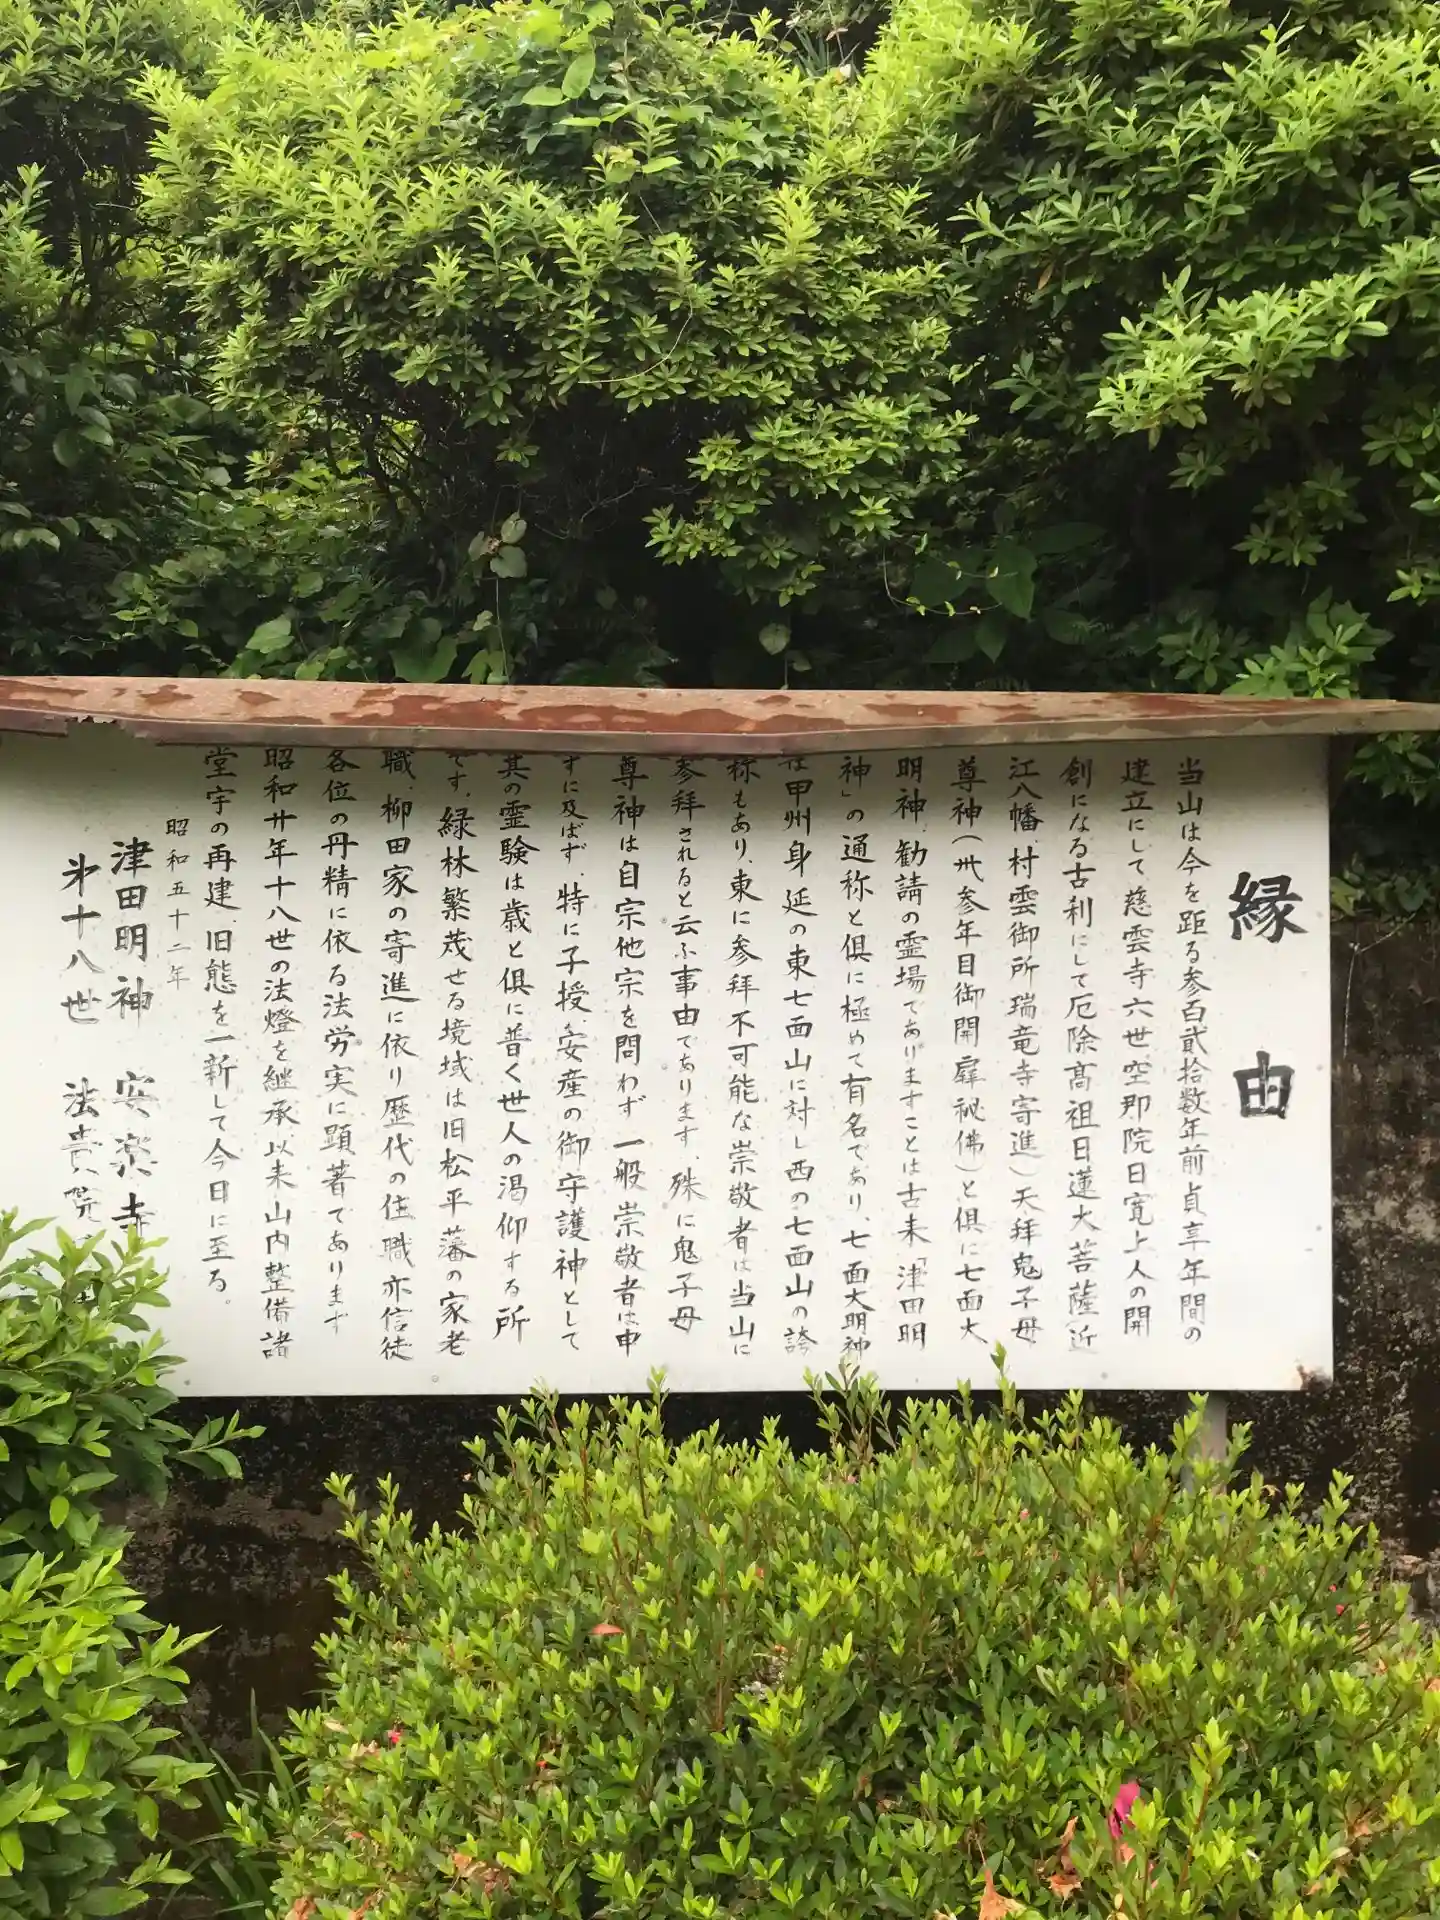 縁由
当山は今を距る参百貳拾数年前貞享年間の
建立にして慈雲寺六世空那院日寛上人の開
創になる古刹にして厄除高祖日蓮大菩薩(近
江八幡、村雲御所瑞竜寺寄進)天拝鬼子母
尊神(卅参年目御開扉秘佛)と倶に七面大
明神、勧請の霊場でありますことは古来「津田明
神」の通称と倶に極めて有名であり、七面大明神
在甲州身延の東七面山に対し西の七面山の誇
称もあり、東に参拝不可能な崇敬者は当山に
参拝されると云ふ事由であります、殊に鬼子母
尊神は自宗他宗を問わず一般崇敬者は申
すに及ばず、特に子授、安産の御守護神として
其の霊験は歳と倶に普く世人の渇仰する所
です、緑林繁茂せる境域は旧松平藩の家老
職、柳田家の寄進に依り歴代の住職亦信徒
各位の丹精に依る法労実に顕著であります
昭和廿年十八世の法燈を継承、以来山内整備諸
堂宇の再建、旧態を一新して今日に至る。
昭和五十二年
津田明神 安楽寺
㐧十八世 法貴院